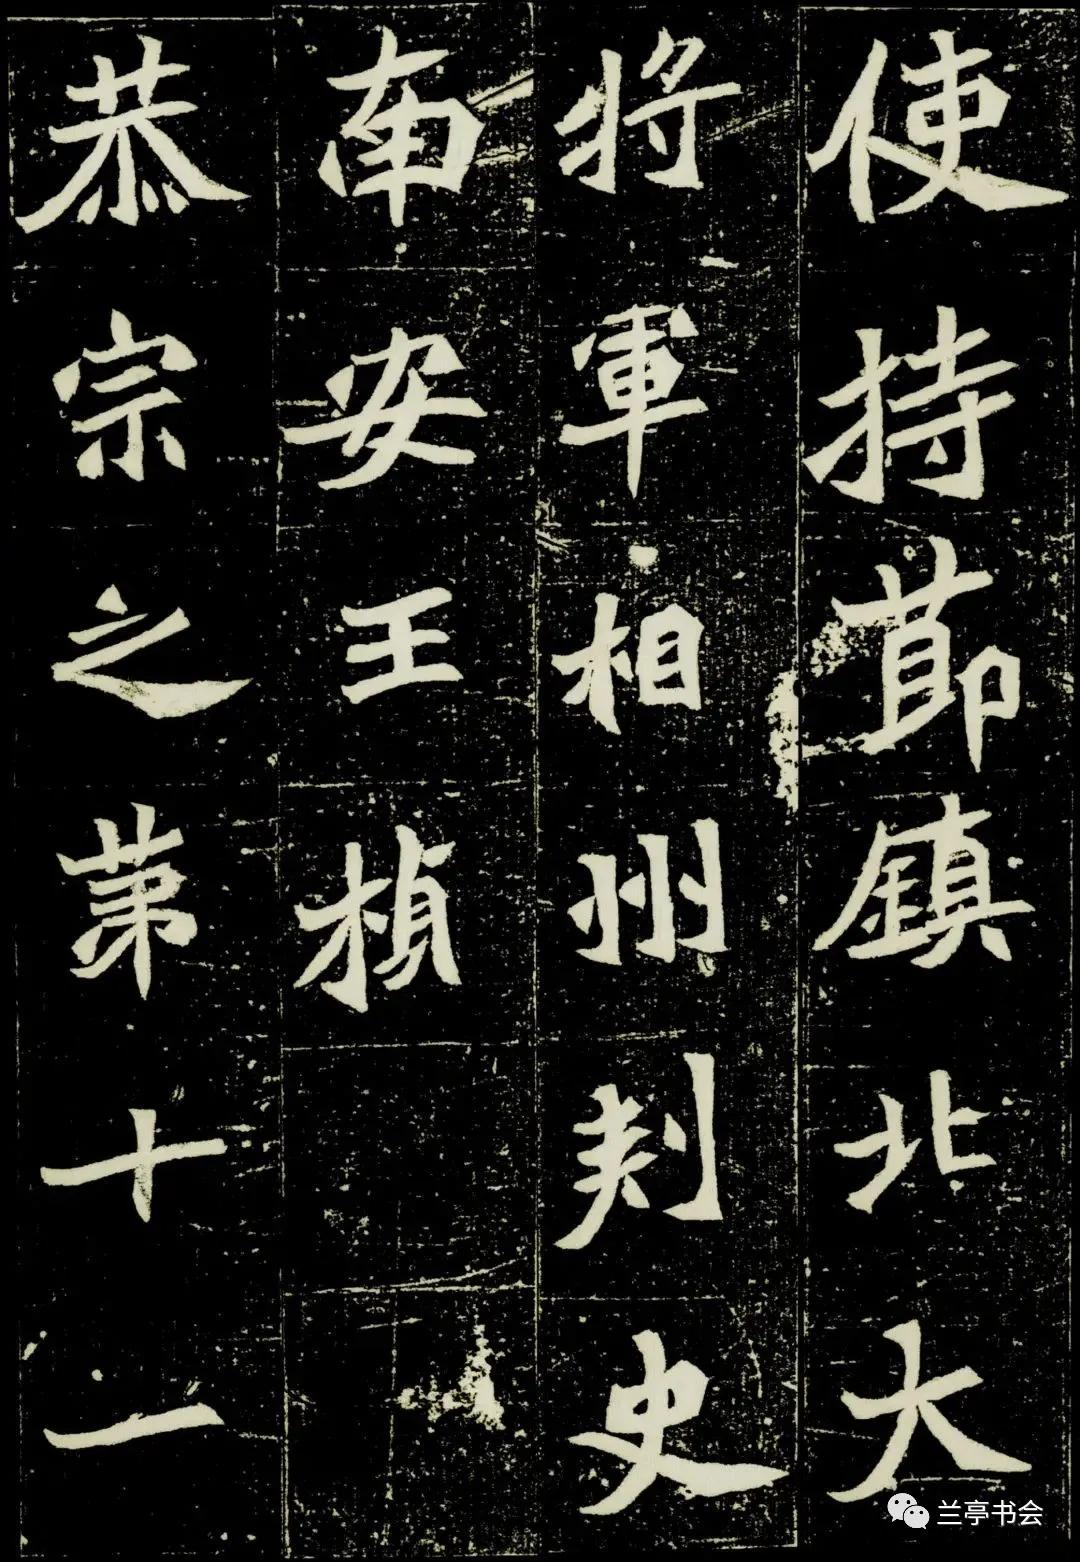 使持節鎮北大
將軍相州刺史
南安王楨
恭宗之第十一
兰亭书会